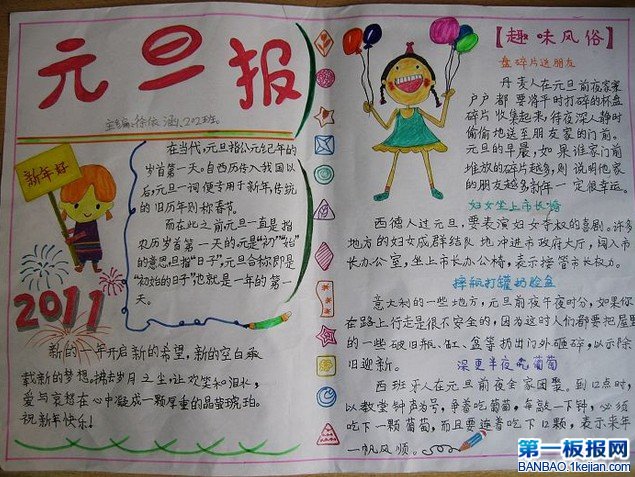 元旦报
主编:徐依涵 202班
在当代,元旦指公元纪年的
岁首第一天。自西历传入我国以
后,元旦一词便专用于新年,传统
的旧历年则称春节。
而在此之前元旦一直是指
农历岁首第一天的元是“初”“始”
的意思旦指“日子”,元旦合称即是
“初始的日子”也就是一年的第一
天。
新年好
2011
新的一年开启新的希望,新的空白承
载新的梦想。拂去岁月之尘,让欢笑和泪水,
爱与哀愁在心中凝成一颗厚重的晶莹琥珀。
祝新年快乐!
【趣味风俗】
盘碎片送朋友
丹麦人在元旦前夜家家
户户都要将平时打碎的杯盘
碎片收集起来,待夜深人静时
偷偷地送至朋友家的门前。
元旦的早晨,如果谁家门前
堆放的碎片越多,则说明他家
的朋友越多新年一定很幸运。
妇女坐上市长椅
西德人过元旦,要表演妇女夺权的喜剧。许多
地方的妇女成群结队地冲进市政府大厅,闯入市
长办公室,坐上市长办公椅,表示接管市长权力。
摔瓶打罐扔脸盆
意大利的一些地方,元旦前夜午夜时分,如果你
在路上行走是很不安全的,因为这时人们都要把屋里
的一些破旧瓶、缸、盆等扔出门外砸碎,以示除
旧迎新。
深更半夜吃葡萄
西班牙人在元旦前夜全家团聚。到12点时,
以教堂钟声为号,争着吃葡萄,每敲一下钟,必须
吃下一颗葡萄,而且要连着吃下12颗,表示来年
一帆风顺。
第一板报网
BANBAO.1kejian.com